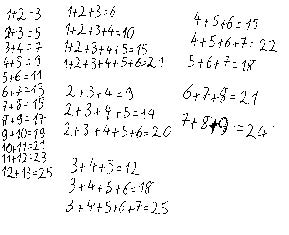 1+2=3
2+3=5
3+4=7
4+5=9
5+6=11
6+7=13
7+8=15
8+9=17
9+10=19
10+11=21
11+12=23
12+13=25
1+2+3=6
1+2+3+4=10
1+2+3+4+5=15
1+2+3+4+5+6=21
2+3+4=9
2+3+4+5=14
2+3+4+5+6=20
3+4+5=12
3+4+5+6=18
3+4+5+6+7=25
4+5+6=15
4+5+6+7=22
5+6+7=18
6+7+8=21
7+8+9=24